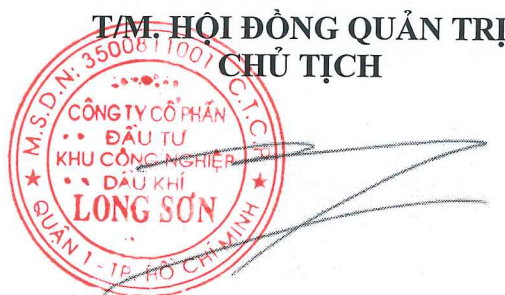 T/M. HỘI ĐỒNG QUẢN TRỊ
CHỦ TỊCH
M.S.D.N: 3500811001 - C.T.C.P
CÔNG TY CỔ PHẦN
ĐẦU TƯ
KHU CÔNG NGHIỆP
DẦU KHÍ
LONG SƠN
QUẬN 1 - TP. HỒ CHÍ MINH